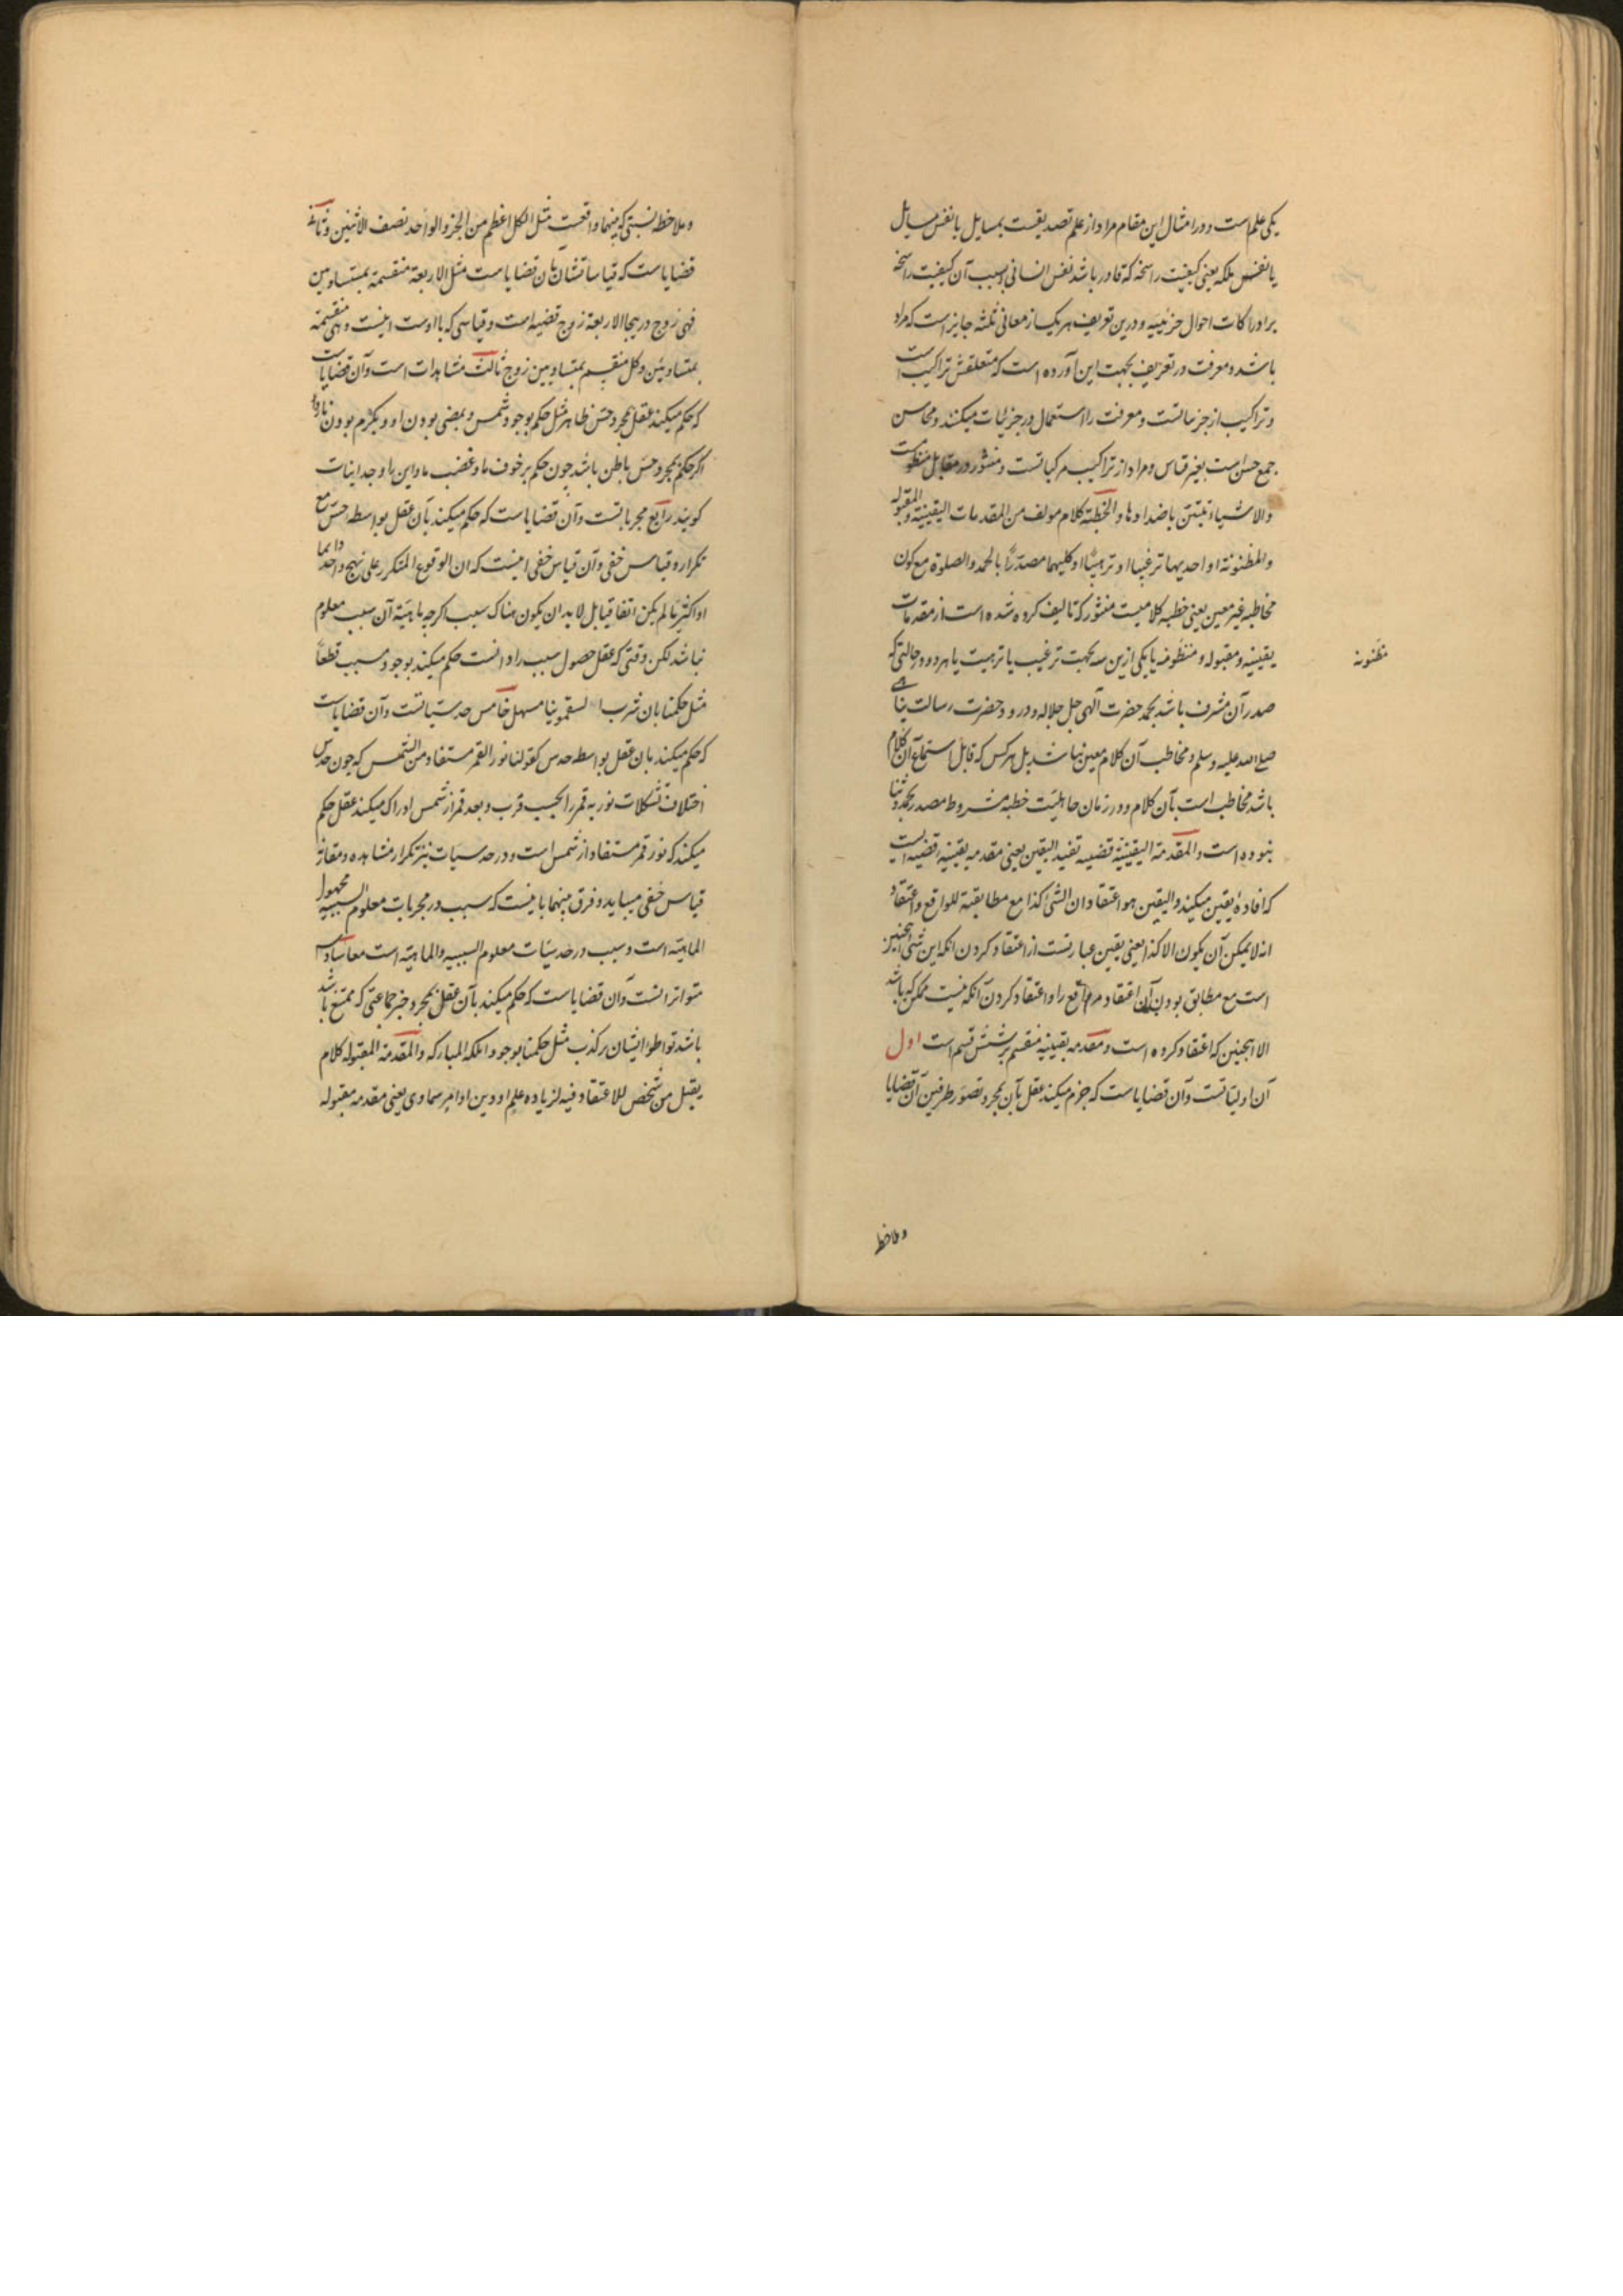 یکی علم است و در امثال این مقام مراد از علم تصدیقست بمسایل یا نفس مسایل
یا نفس ملکه یعنی کیفیت راسخه که قادر باشد نفس انسانی بسبب آن کیفیت راسخه
بر ادراکات احوال جزئیه و درین تعریف هر یک از معانی ثلثه جایز است که مراد
باشد و معرفت در تعریف بجهت این آورده است که متعلقش تراکیب است
و تراکیب از جزییاتست و معرفت را استعمال در جزئیات میکنند و محاسن
جمع حسن است بغیر قیاس و مراد از تراکیب مرکباتست و منثور در مقابل منظومست
والاشیاء تتبین باضدادها والخطبة کلام مولف من المقدمات الیقینیة والمقبوله
والمظنونة او احدیها ترغیبا او ترهیبًا او کلیهما مصدرًا بالحمد والصلوة مع کون
مخاطبه غیر معین یعنی خطبه کلامیست منثور که تالیف کرده شده است از مقدمات
یقینیه و مقبوله و مظنونه یا یکی ازین سه بجهت ترغیب یا ترهیب یا هر دو در حالتی که
مظنونه
صدر آن مشرف باشد بحمد حضرت آلهی جل جلاله و درود حضرت رسالت پناهی
صلی الله علیه وسلم و مخاطب آن کلام معین نباشد بل هر کس که قابل استماع آن کلام
باشد مخاطب است بآن کلام و در زمان جاهلیت خطبه مشروط مصدر بحمد و ثنا
نبوده است والمقدمة الیقینیة قضیة تفید الیقین یعنی مقدمه یقینیه قضیه ایست
که افادهٔ یقین میکند والیقین هو اعتقاد ان الشئ کذا مع مطابقیة للواقع واعتقاد
انه لا یمکن آن یکون الا کذا یعنی یقین عبارتست از اعتقاد کردن انکه این شئ اینچنین
است مع مطابق بودن آن اعتقاد مر واقع را و اعتقاد کردن آنکه نیست ممکن که باشد
الا اینچنین که اعتقاد کرده است و مقدمه یقینیه منقسم بر شش قسم است اول
آن اولیاتست و آن قضایاست که جزم میکند عقل بآن بمجرد تصور طرفین آن قضایا
وملاحظه
وملاحظه نسبتی که بینهما واقعیست مثل الکل اعظم من الجزء والواحد نصف الاثنین و ثانی
قضایاست که قیاساتشان بان قضایاست مثل الاربعة منقسمة بمتساویین
فهی زوج در اینجا الاربعة زوج قضیه است و قیاسی که با اوست اینست و هی منقسمة
بمتساویین و کل منقسم بمتساویین زوج ثالث مشاهدات است و آن قضایاست
که حکم میکند عقل بمجرد حس ظاهر مثل حکم بوجود شمس و بمضی بودن او و بگرم بودن نار و
اگر حکم بمجرد حس باطن باشد چون حکم بر خوف ما و غضب ما و این را وجدانیات
گویند رابع مجرباتست و آن قضایاست که حکم میکند بآن عقل بواسطه حس مع
تکرار و قیاس خفی و آن قیاس خفی اینست که ان الوقوع المتکرر علی نهج واحد دایما
او اکثریا لم یکن اتفاقیا بل لابد ان یکون هناک سبب اگرچه ماهیة آن سبب معلوم
نباشد لکن وقتی که عقل حصول سبب را دانست حکم میکند بوجود مسبب قطعاً
مثل حکمنا بان شرب السقمونیا مسهل خامس حدسیاتست و آن قضایاست
که حکم میکند بان عقل بواسطه حدس کقولنا نور القمر مستفاد من الشمس که چون حدس
اختلاف تشکلات نوریه قمر را بحسب قرب و بعد قمر از شمس ادراک میکند عقل حکم
میکند که نور قمر مستفاد از شمس است و در حدسیات نیز تکرار مشاهده و مقارنه
قیاس خفی میباید و فرق بینهما باینست که سبب در مجربات معلوم السببیه مجهول
الماهیه است و سبب در حدسیات معلوم السببیه والماهیه است معا سادس
متواترانست و آن قضایاست که حکم میکند بآن عقل بمجرد خبر جماعتی که ممتنع باشد
باشد تواطؤ ایشان بر کذب مثل حکمنا بوجود المکة المبارکه والمقدمة المقبوله کلام
یقبل من شخص للاعتقاد فیه لزیاده علم او دین او امر سماوی یعنی مقدمه مقبوله